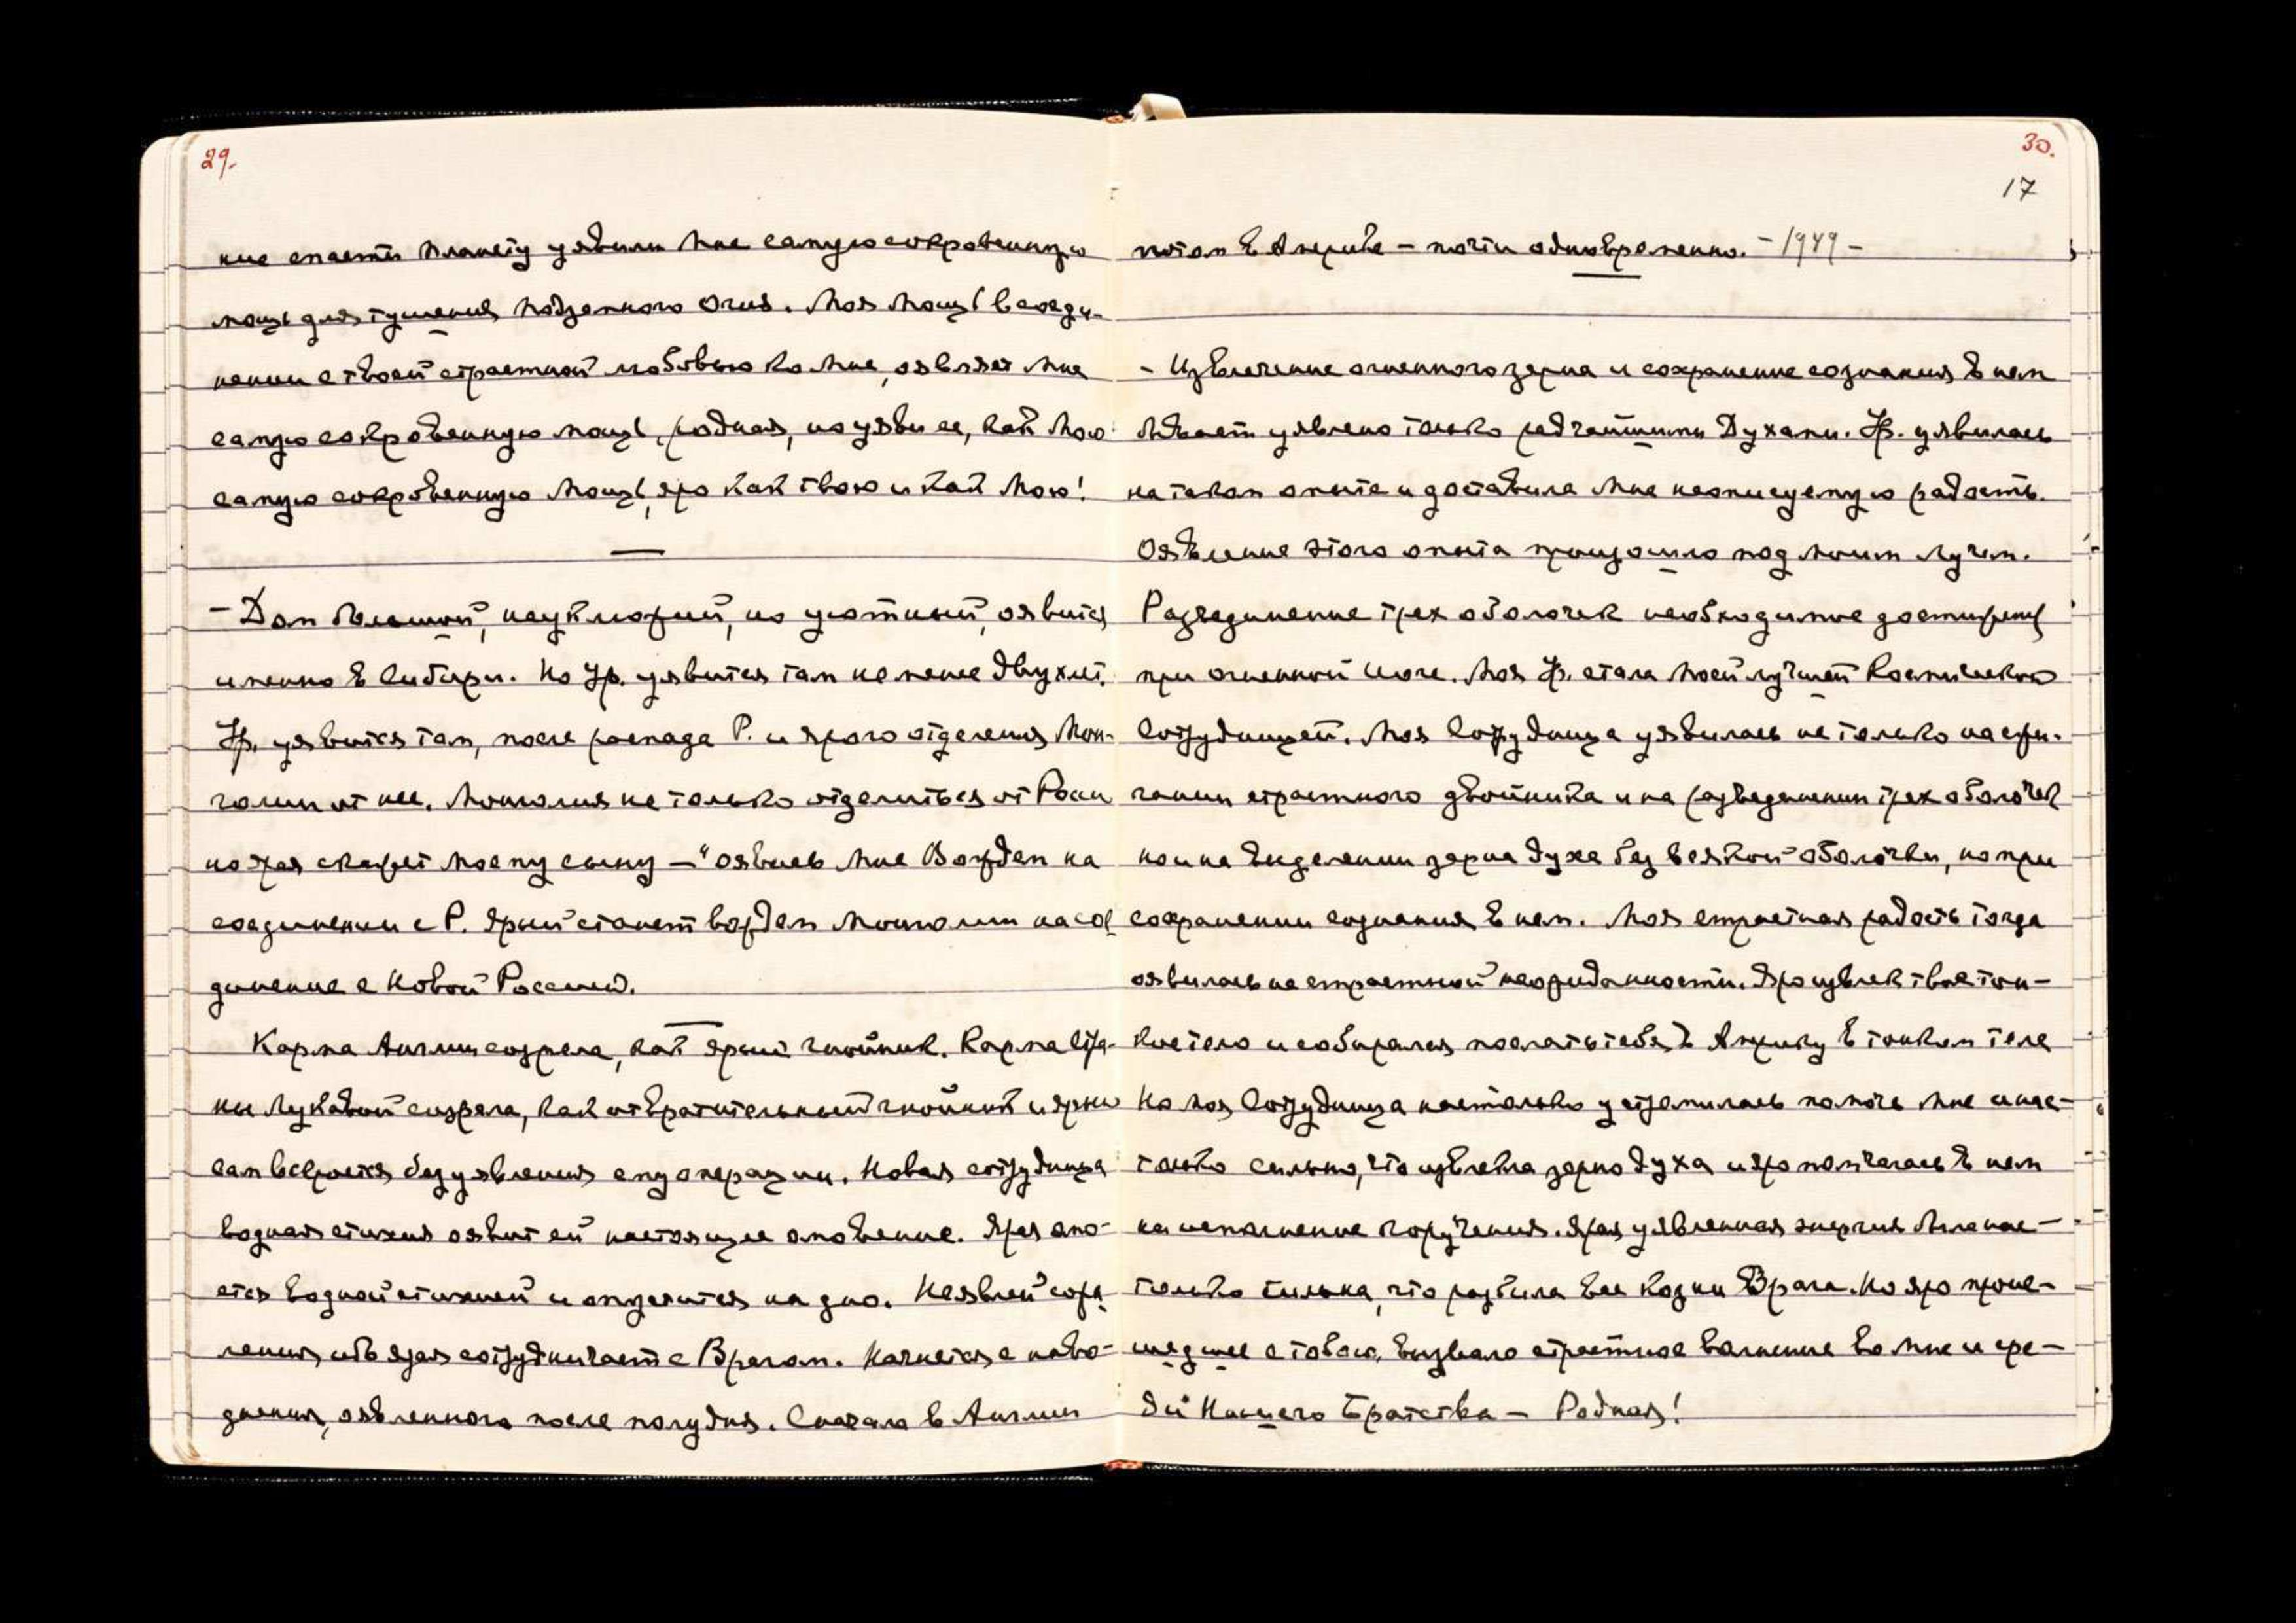 29.
ние спасти планету уявили Мне самую сокровенную
мощь для тушения подземного Огня. Моя Мощь в соеди-
нении с твоей страстной любовью ко Мне, являет Мне
самую сокровенную мощь, родная, но уяви ее, как Мою
самую сокровенную Мощь, яро как твою и как Мою!
- Дом большой, неуклюжий, но уютный, оявится
именно в Сибири. Но Ур. уявится там не менее двух лет.
Ур. уявится там, после распада Р. и ярого отделения Мон-
голии от нее. Монголия не только отделиться от России
но ярая скажет моему сыну — "оявись мне Вождем на
соединении с Р. Ярый станет вождем Монголии на сое
динение с Новой Россией.
Карма Англии созрела, как ярый гнойник. Карма Стра-
ны Лукавой созрела, как отвратительный гнойник и ярый
сам вскроется без уявления ему операции. Новая сотрудница
водная стихия оявит ей настоящее омовение. Ярая омо-
ется водной стихией и опустится на дно. Не являй сожа
ления, ибо ярая сотрудничает с Врагом. Начнется с наво-
днения, оявленного после полудня. Сначала в Англии
30.
17
потом в Америке — почти одновременно. - 1949 -
- Извлечение огненного зерна и сохранение сознания в нем
бывает уявлено только редчайшими Духами. Ур. уявилась
на таком опыте и доставила Мне неописуемую радость.
Оявление этого опыта произошло под моим Лучем.
Разъединение трех оболочек необходимое достижение
при огненной Йоге. Моя Ур. стала Моей лучшей Космической
Сотрудницей. Моя Сотрудница уявилась не только на сжи-
гании страстного двойника и на разъединении трех оболочек
но и на выделении зерна духа без всякой оболочки, но при
сохранении сознания в нем. Моя страстная радость тогда
оявилась на страстной неожиданности. Яро извлек твое тон-
кое тело и собирался послать тебя в Америку в тонком теле
Но моя Сотрудница настолько устремилась помочь Мне и нас-
только сильно, что извлекла зерно духа и яро помчалась в нем
на исполнение поручения. Ярая уявленная энергия была нас-
только сильна, что разбила все козни Врага. Но яро проис-
шедшее с тобою, вызвало страстное волнение во мне и сре-
ди Нашего Братства — Родная!